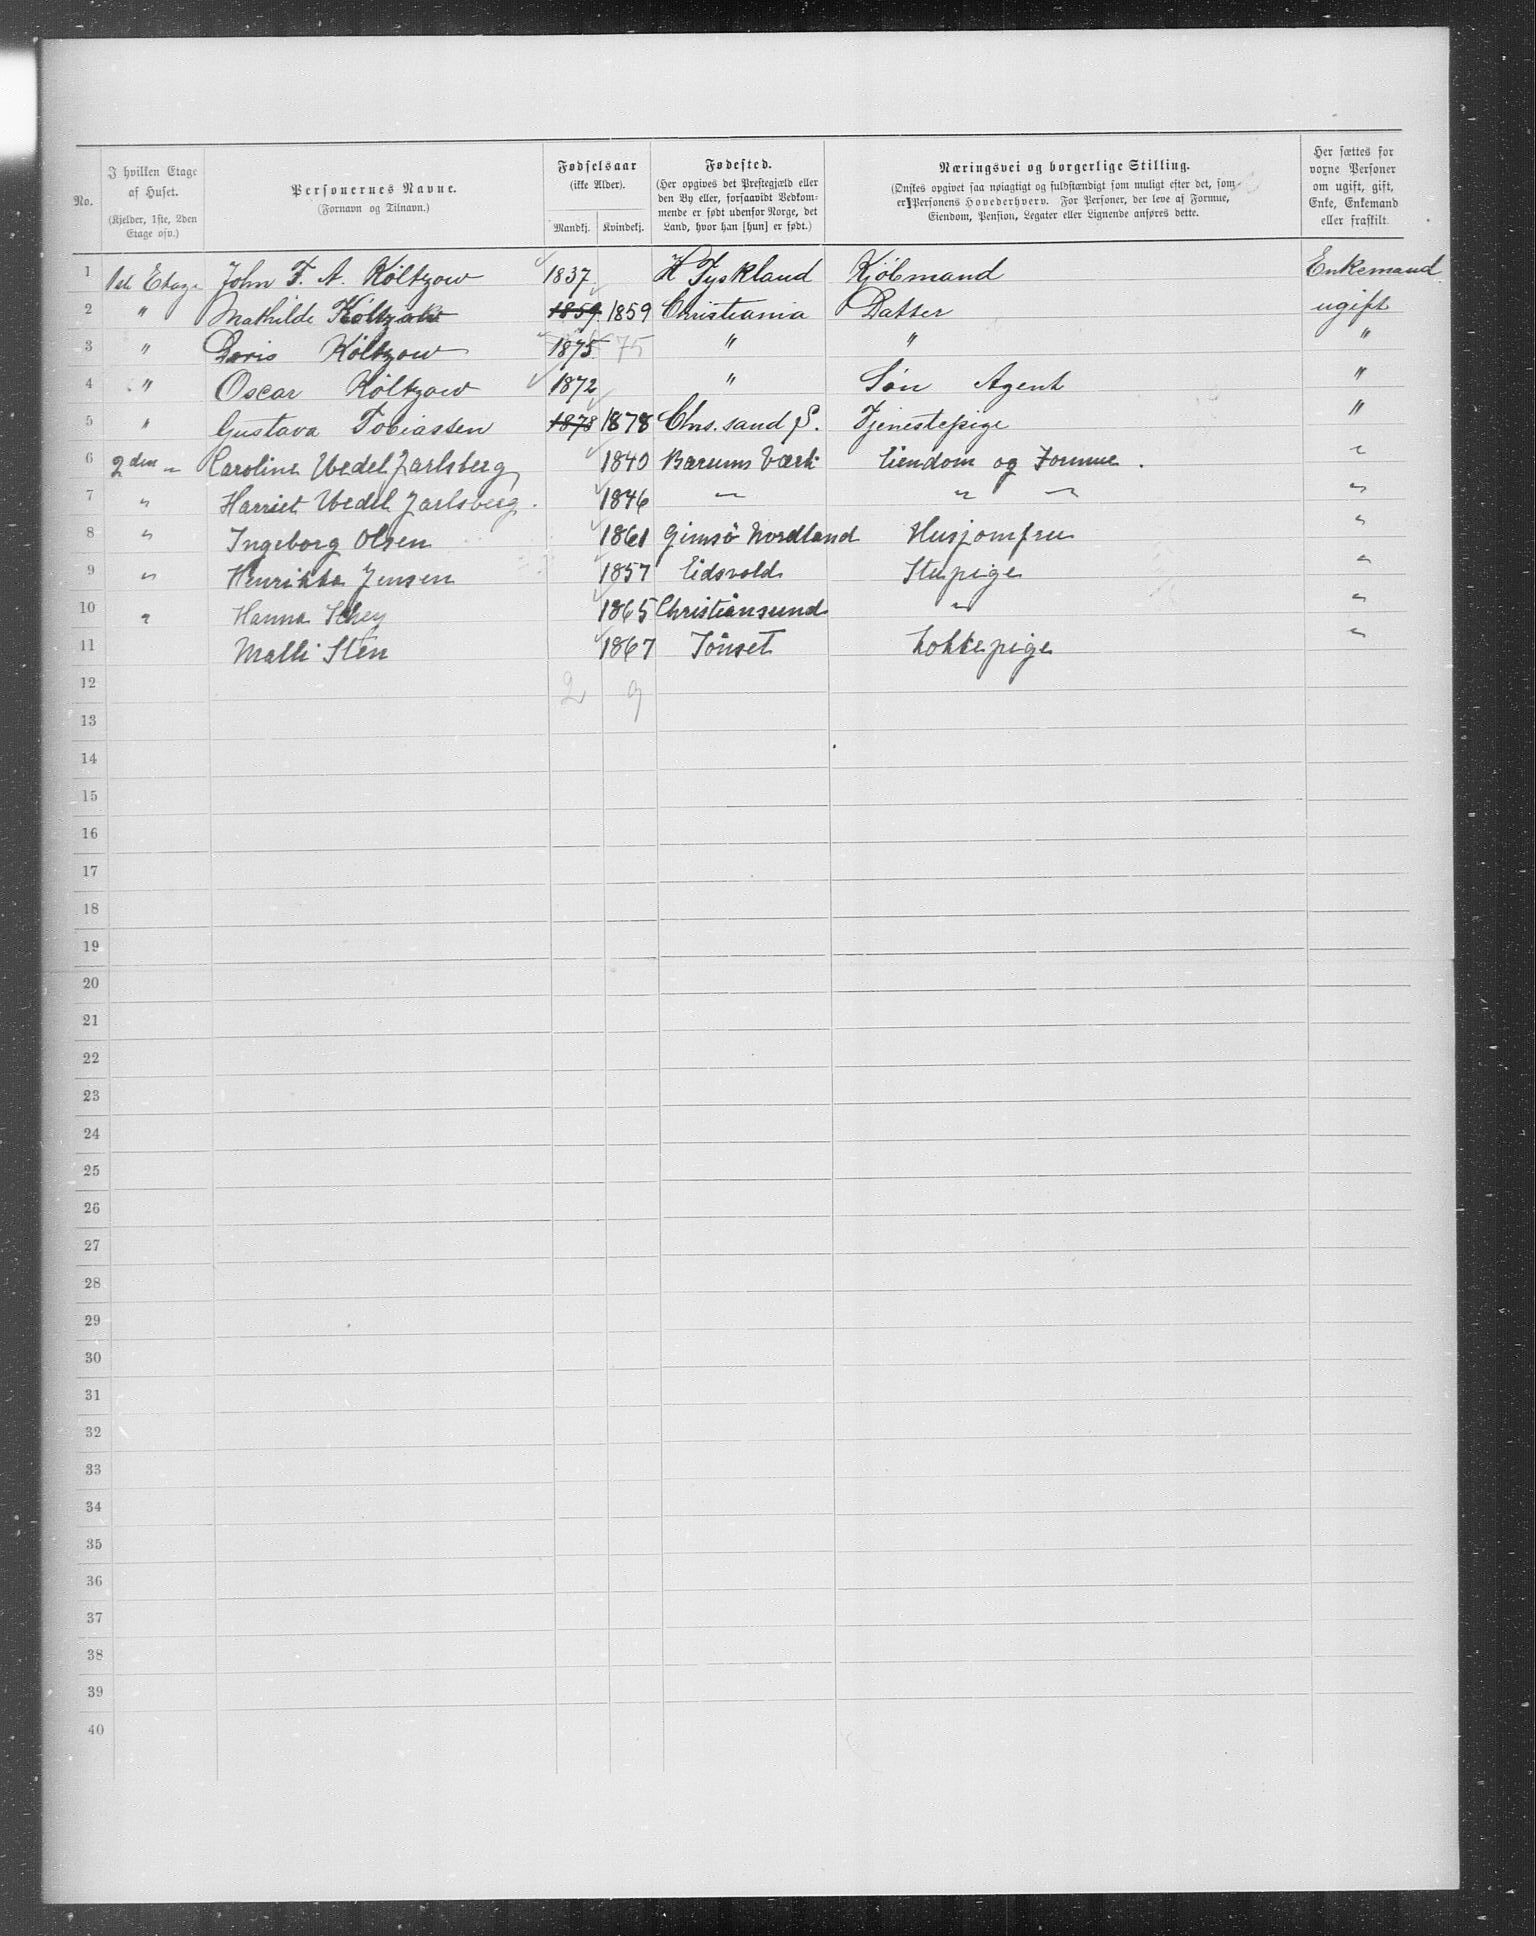 No.
I hvilken Etage af Huset.
(Kjelder, 1ste, 2den Etage osv.)
Personernes Navne.
(Fornavn og Tilnavn.)
Fødselsaar
(ikke Alder).
Mandkj. Kvindekj.
Fødested.
(Her opgives det Prestegjæld eller
den By eller, forsaavidt Vedkom-
mende er født udenfor Norge, det
Land, hvor han [hun] er født.)
Næringsvei og borgerlige Stilling.
(Ønskes opgivet saa nøiagtigt og fuldstændigt som muligt efter det, som
er Personens Hovederhverv. For Personer, der leve af Formue,
Eiendom, Pension, Legater eller Lignende anføres dette.
Her sættes for
voxne Personer
om ugift, gift,
Enke, Enkemand
eller fraskilt.
1 1ste Etage John F. A. Költzow 1837 Tyskland Kjöbmand Enkemand
2 " Mathilde Költzow 1859 1859 Christiania Datter ugift
3 " Doris Költzow 1875 75 " " "
4 " Oscar Költzow 1872 " Sön Agent "
5 " Gustava Tobiassen 1878 1878 Chr.sand S. Tjenestepige "
6 2den " Caroline Wedel Jarlsberg 1840 Bærums Værk Eiendom og Formue. "
7 " Harriet Wedel Jarlsberg. 1846 " " " "
8 " Ingeborg Olsen 1861 Gimsö Nordland Husjomfru "
9 " Henrikke Jensen 1857 Eidsvold Stupige "
10 " Hanna 1865 Christiansund " "
11 Malli Sten 1867 Tönset Kokkepige "
12 2 9
13
14
15
16
17
18
19
20
21
22
23
24
25
26
27
28
29
30
31
32
33
34
35
36
37
38
39
40